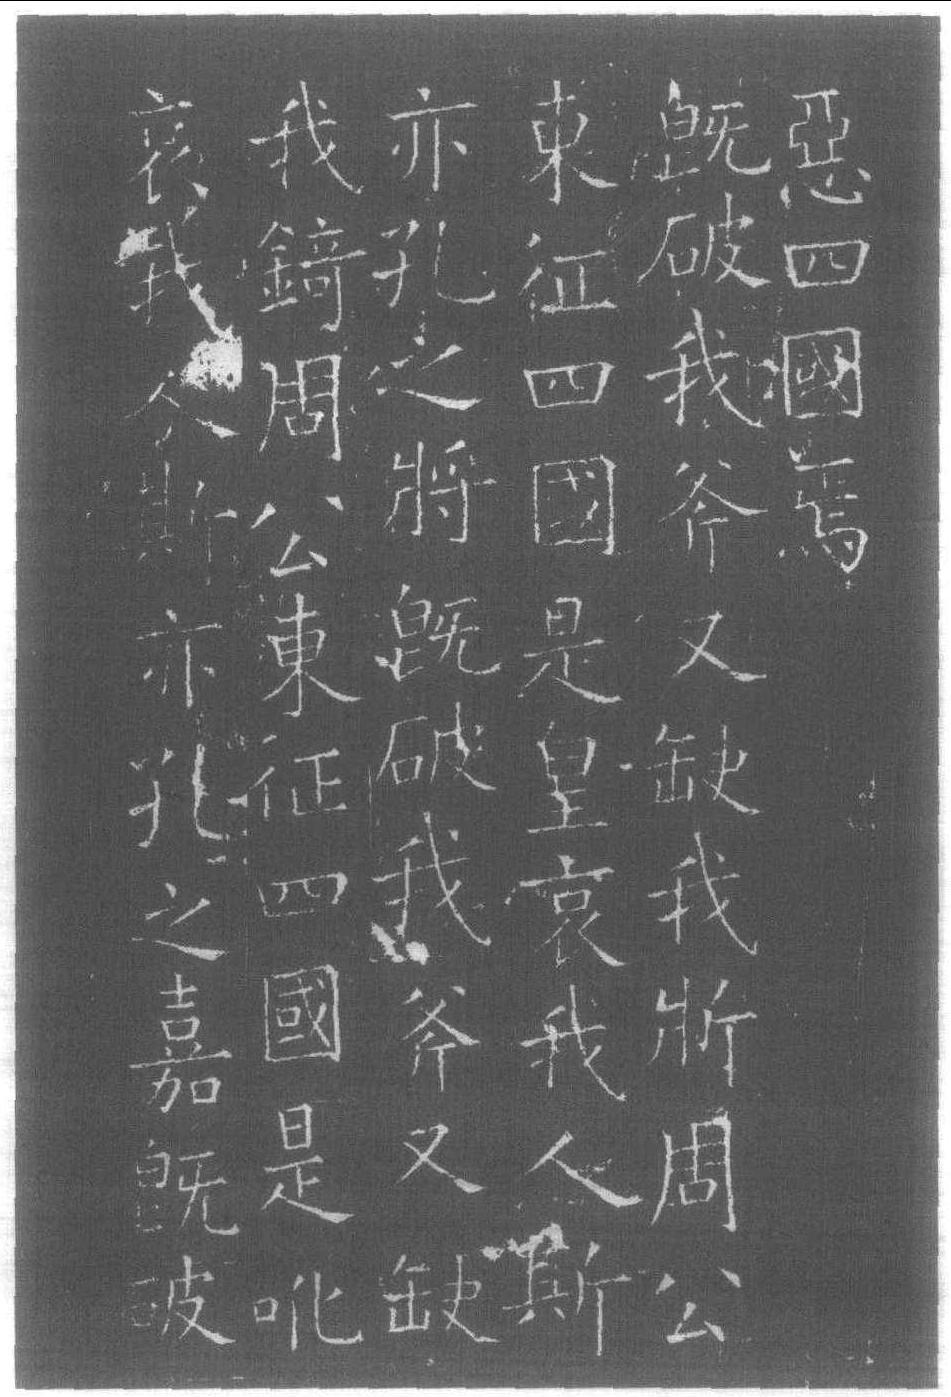 惡四國焉
既破我斧又缺我斨周公
東征四國是皇哀我人斯
亦孔之將既破我斧又缺
我錡周公東征四國是吪
哀我人斯亦孔之嘉既破